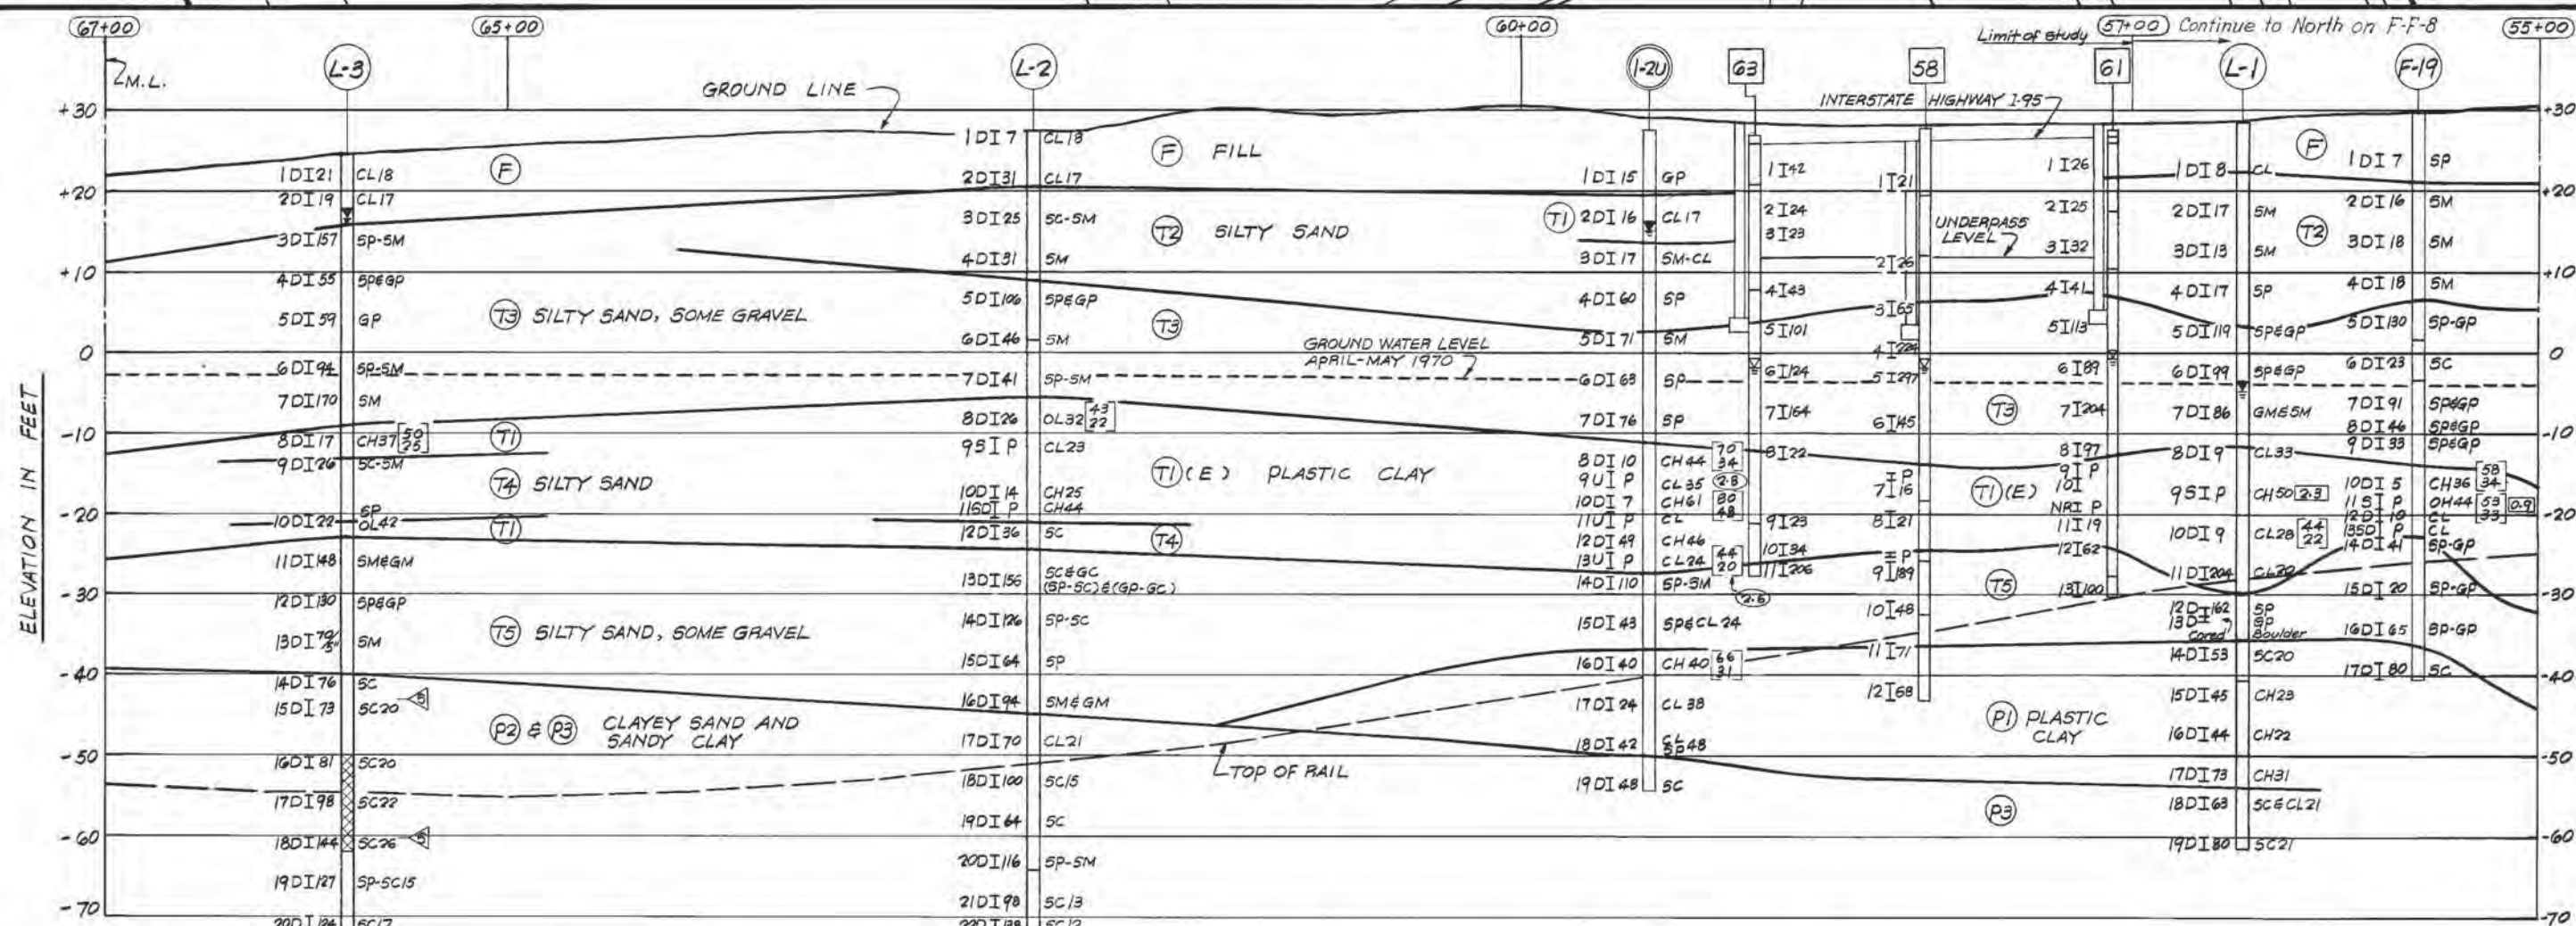 67+00
65+00
60+00
57+00
55+00
Limit of study
Continue to North on F-F-8
M.L.
L-3
L-2
1-2U
63
58
61
L-1
F-19
GROUND LINE
INTERSTATE HIGHWAY I-95
UNDERPASS
LEVEL
GROUND WATER LEVEL
APRIL-MAY 1970
TOP OF RAIL
ELEVATION IN FEET
+30
+20
+10
0
-10
-20
-30
-40
-50
-60
-70
+30
+20
+10
0
-10
-20
-30
-40
-50
-60
-70
F
F FILL
F
T1
T2 SILTY SAND
T2
T3 SILTY SAND, SOME GRAVEL
T3
T3
T1
T4 SILTY SAND
T1
T1 (E) PLASTIC CLAY
T1 (E)
T4
T5 SILTY SAND, SOME GRAVEL
T5
P2 & P3 CLAYEY SAND AND
SANDY CLAY
P1 PLASTIC
CLAY
P3
1DI21 CL18
2DI19 CL17
3DI157 SP-SM
4DI55 SP&GP
5DI59 GP
6DI94 SP-SM
7DI170 SM
8DI17 CH37 50 25
9DI26 SC-SM
SP
10DI22 OL42
11DI148 SM&GM
12DI130 SP&GP
13DI79/5" SM
14DI76 SC
15DI73 SC20 5
16DI81 SC20
17DI98 SC22
18DI144 SC26 5
19DI127 SP-SC15
20DI124 SC17
1DI7 CL18
2DI31 CL17
3DI25 SC-SM
4DI31 SM
5DI106 SP&GP
6DI46 SM
7DI41 SP-SM
8DI26 OL32 43 22
9SIP CL23
10DI14 CH25
11SDI P CH44
12DI36 SC
13DI156 SC&GC
(SP-SC)&(GP-GC)
14DI126 SP-SC
15DI64 SP
16DI94 SM&GM
17DI70 CL21
18DI100 SC15
19DI64 SC
20DI116 SP-SM
21DI98 SC13
22DI138 SC12
1DI15 GP
2DI16 CL17
3DI17 SM-CL
4DI60 SP
5DI71 SM
6DI63 SP
7DI76 SP
8DI10 CH44 70 34
9UI P CL35 2.8
10DI7 CH61 80 48
11UI P CL
12DI49 CH46
13UI P CL24 44 20
2.6
14DI110 SP-SM
15DI43 SP&CL24
16DI40 CH40 66 31
17DI24 CL38
18DI42 CL
SP48
19DI48 SC
1I42
2I24
3I23
4I43
5I101
6I124
7I164
8I22
9I23
10I34
11I206
1I21
2I26
3I65
4I224
5I297
6I145
I P
7I16
8I21
I P
9I189
10I48
11I71
12I68
1I26
2I25
3I32
4I41
5I113
6I89
7I204
8I97
9I P
10I
NRI P
11I19
12I62
13I100
1DI8 CL
2DI17 SM
3DI13 SM
4DI17 SP
5DI119 SP&GP
6DI99 SP&GP
7DI86 GM&SM
8DI9 CL33
9SIP CH50 2.3
10DI9 CL28 44 22
11DI204 CL20
12DI162 SP
13DI GP
Cored Boulder
14DI53 SC20
15DI45 CH23
16DI44 CH22
17DI73 CH31
18DI63 SC&CL21
19DI80 SC21
1DI7 SP
2DI16 SM
3DI18 SM
4DI18 SM
5DI130 SP-GP
6DI23 SC
7DI91 SP&GP
8DI46 SP&GP
9DI33 SP&GP
10DI5 CH36 58 34
11SI P OH44 53 33 0.9
12DI10 CL
13SDI P CL
14DI41 SP-GP
15DI20 SP-GP
16DI65 SP-GP
17DI80 SC